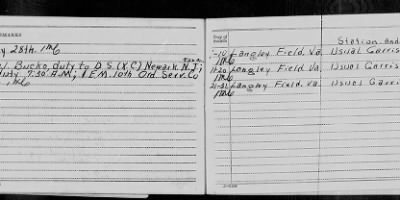 REMARKS
y 28th. 1M6
Bucko, duty to D.S. (X.C.) Newark N.J.;
duty 7:30 A.M.; 1 E.M. 10th Ord. Serv. Co
1M6
Station and
1-10 Langley Field, Va. Usual Garris
1M6
11-20 Langley Field, Va. Usual Garris
1M6
21-31 Langley Field, Va. Usual Garris
1M6